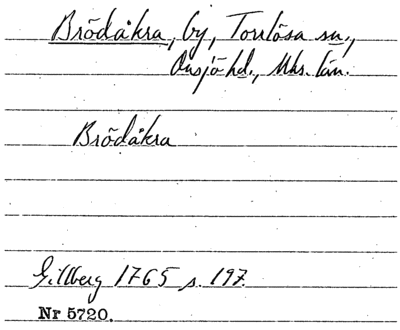 Brödåkra, by, Torrlösa sn.,
Onsjö hd., Mhs. län.
Brödåkra
Gillberg 1765 s. 197.
Nr 5720.